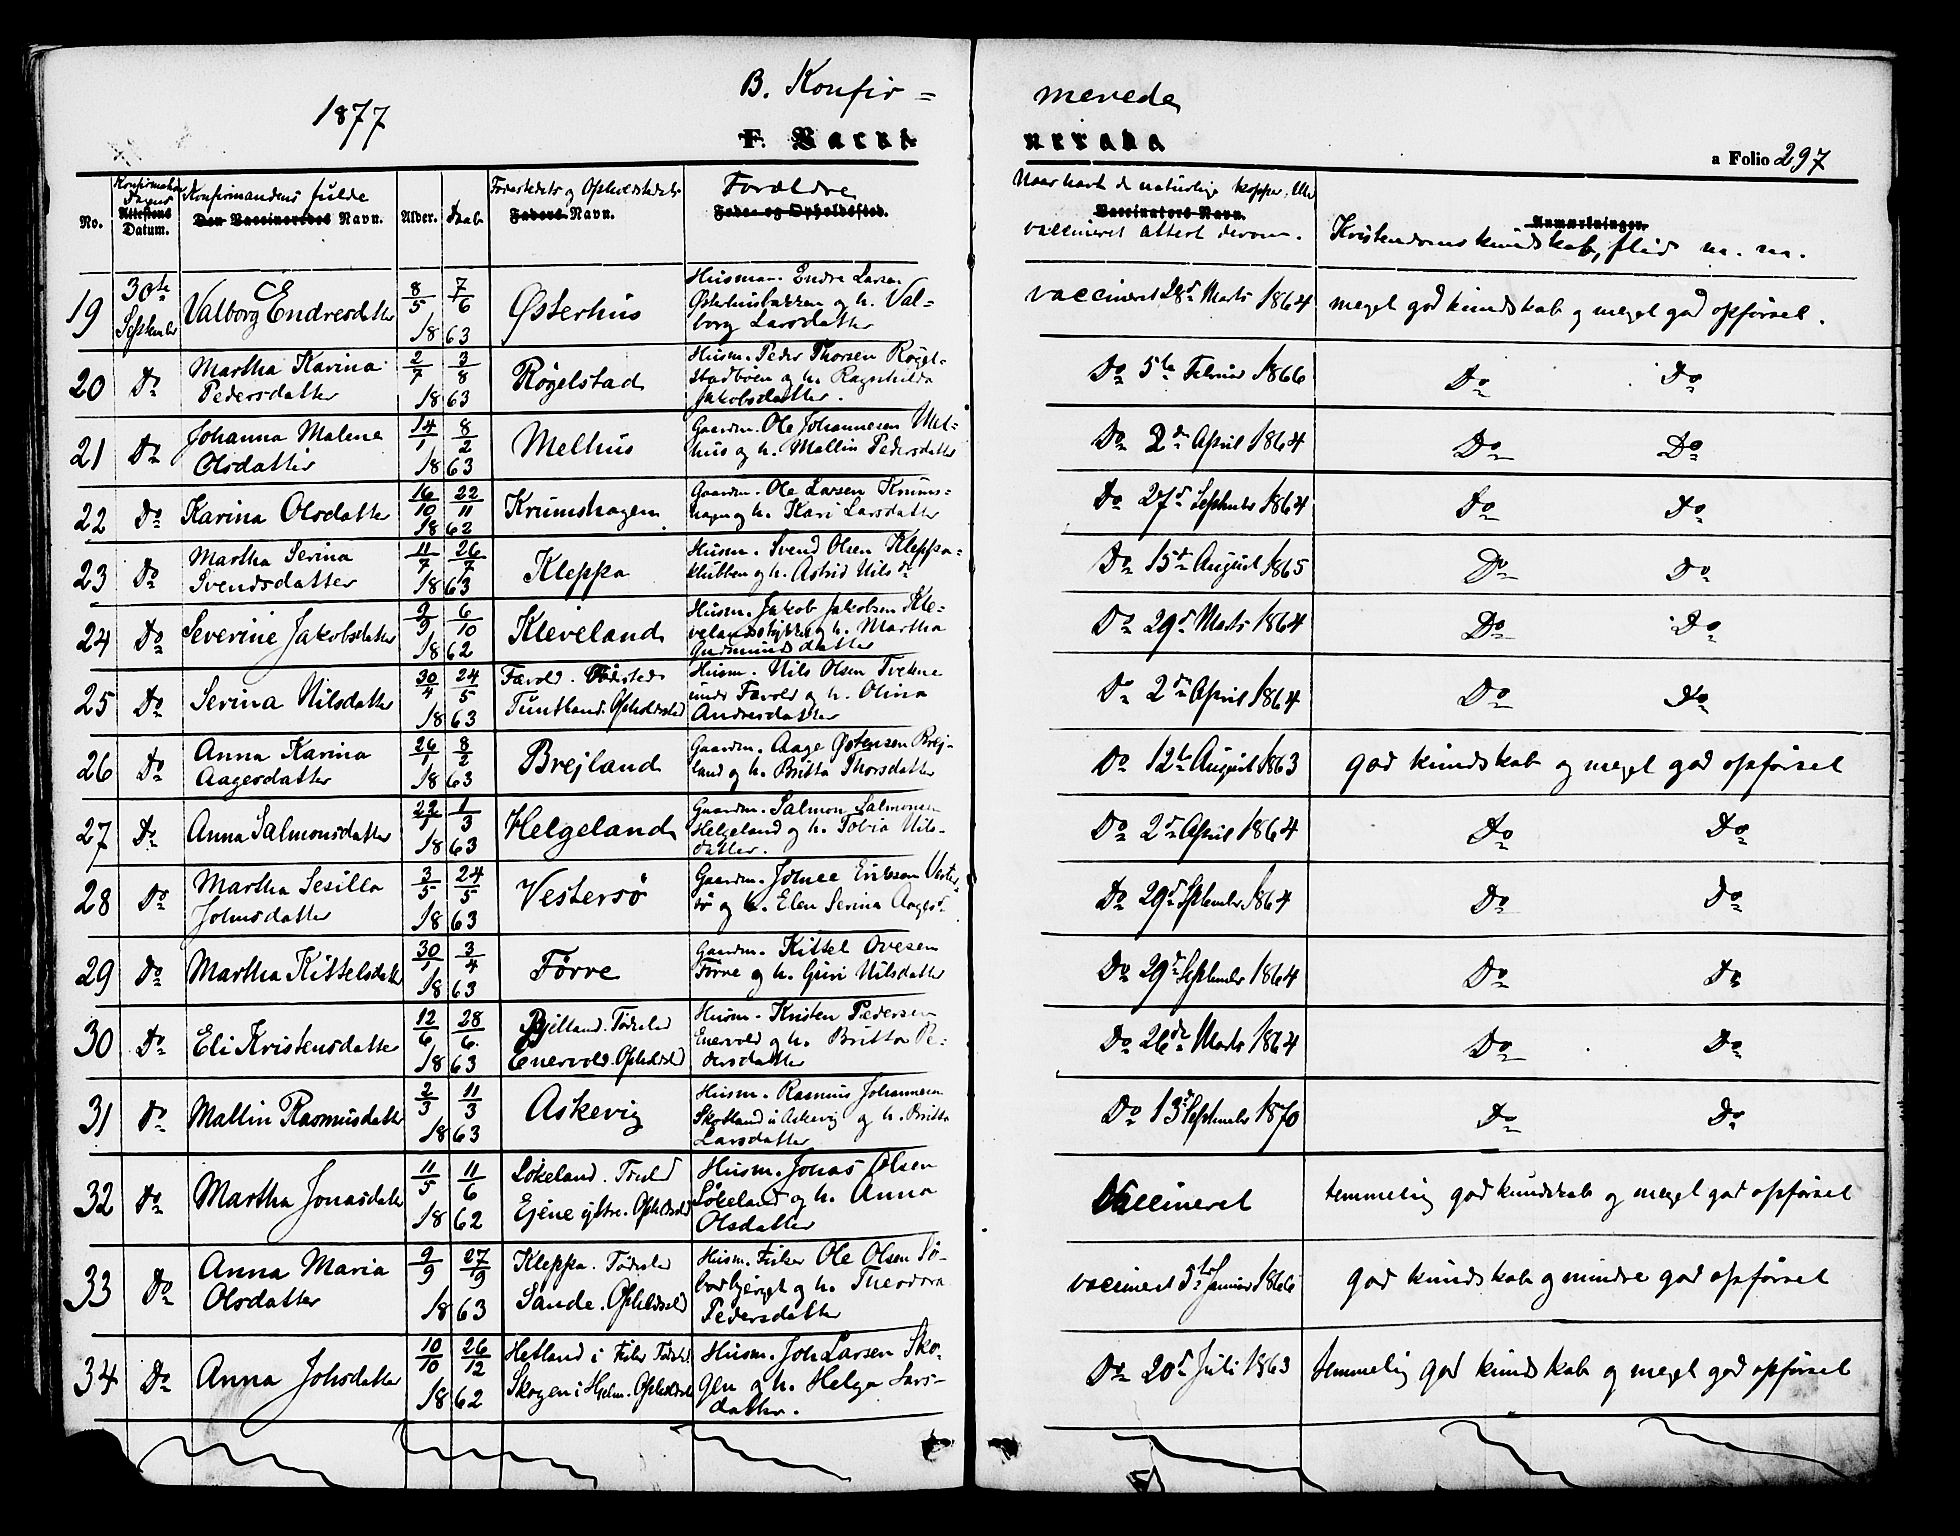 1877
B. Konfir=
merede
F. Vacci
nerede
a Folio 297
No.
Konfirmationsdagens
Attestens
Datum.
Konfirmandens fulde
Den Vaccineredes Navn.
Alder.
Daab
Faderens Navn.
Forældre
Føde- og Opholdssted.
Vaccinators Navn.
vaccineret Attest derom.
Anmærkninger.
Kristendomskundskab, flid m. m.
19 30te September Valborg Endresdatter 8/5 7/6 1863 Østerhus
Husman. Endre Larsen
Østerhusbakken og h. Val=
borg Larsdatter
vaccineret 28d Marts 1864 meget god kundskab og meget god opførsel.
20 Do Martha Karina
Pedersdatter
2/7 3/8 1863 Røgelstad
Husm. Peder Thorsen Røgel=
stadbøen og h. Ragnhilda
Jakobsdatter.
Do 5te Februar 1866 Do Do
21 Do Johanna Malene
Olsdatter
14/1 8/2 1863 Melhus
Gaardm. Ole Johannesen Mel=
hus og h. Mallin Pedersdatter
Do 2den April 1864 Do Do
22 Do Karina Olsdatter 16/10 22/11 1862 Krumshagen
Gaardm. Ole Larsen Krums=
hagen og h. Kari Larsdatter
Do 27d September 1864 Do Do
23 Do Martha Serina
Svendsdatter
11/7 26/7 1863 Kleppa
Husm. Svend Olsen Kleppa=
klubben og h. Astrid Nilsdr
Do 15de August 1865 Do Do
24 Do Severine Jakobsdatter 9/9 6/10 1862 Kleveland
Husm. Jakob Jakobsen Kle=
velandsstykket og h. Martha
Gudmundsdatter
Do 29d Marts 1864 Do Do
25 Do Serina Nilsdatter 30/4 24/5 1863
Færold. Fødested
Tuntland. Opholdssted
Husm. Nils Olsen Tvetene
under Færold og h. Olina
Andersdatter
Do 2den April 1864 Do Do
26 Do Anna Karina
Aagesdatter
26/1 8/2 1863 Brejland
Gaardm. Aage Østensen Brej=
land og h. Britta Thorsdatter
Do 12te August 1863 god kundskab og meget god opførsel
27 Do Anna Salmonsdatter 22/1 1/3 1863 Helgeland
Gaardm. Salmon Salmonsen
Helgeland og h. Tobia Nils=
datter.
Do 2d April 1864 Do Do
28 Do Martha Sesilla
Johnsdatter
3/5 24/5 1863 Vestersø
Gaardm. Johnee Eriksen Vester=
sø og h. Elen Serina Aagesdr
Do 29d September 1864 Do Do
29 Do Martha Kittelsdatter 30/1 3/4 1863 Førre
Gaardm. Kittel Ovesen
Førre og h. Guri Nilsdatter
Do 29d September 1864 Do Do
30 Do Eli Kristensdatter 12/6 28/6 1863
Fødested
Enervold. Opholdssted
Husm. Kristen Pedersen
Enervold og h. Britta Pe=
dersdatter
Do 26de Marts 1864 Do Do
31 Do Mallin Rasmusdatter 2/3 11/3 1863 Askevig
Husm. Rasmus Johannesen
Skotland i Askevig og h. Britta
Larsdatter
Do 13d September 1870 Do Do
32 Do Martha Jonasdatter 11/5 11/6 1862
Løkeland.
Ejene ytre. Opholdssted
Husm. Jonas Olsen
Løkeland og h. Anna
Olsdatter
Vaccineret temmelig god kundskab og meget god opførsel
33 Do Anna Maria
Olsdatter
9/9 27/9 1863
Kleppa. Fødested
Sande. Opholdssted
Husm. Fisker Ole Olsen Sø=
og h. Theodora
Pedersdatter
vaccineret 5te Januar 1866 god kundskab og mindre god opførsel
34 Do Anna Johsdatter 10/10 26/12 1862
Hetland i Fødested
Skogen i Hjelm. Opholdssted
Husm. Joh Larsen Sko=
gen og h. Helga Lars=
datter.
Do 20d Juli 1863 temmelig god kundskab og meget god opførsel